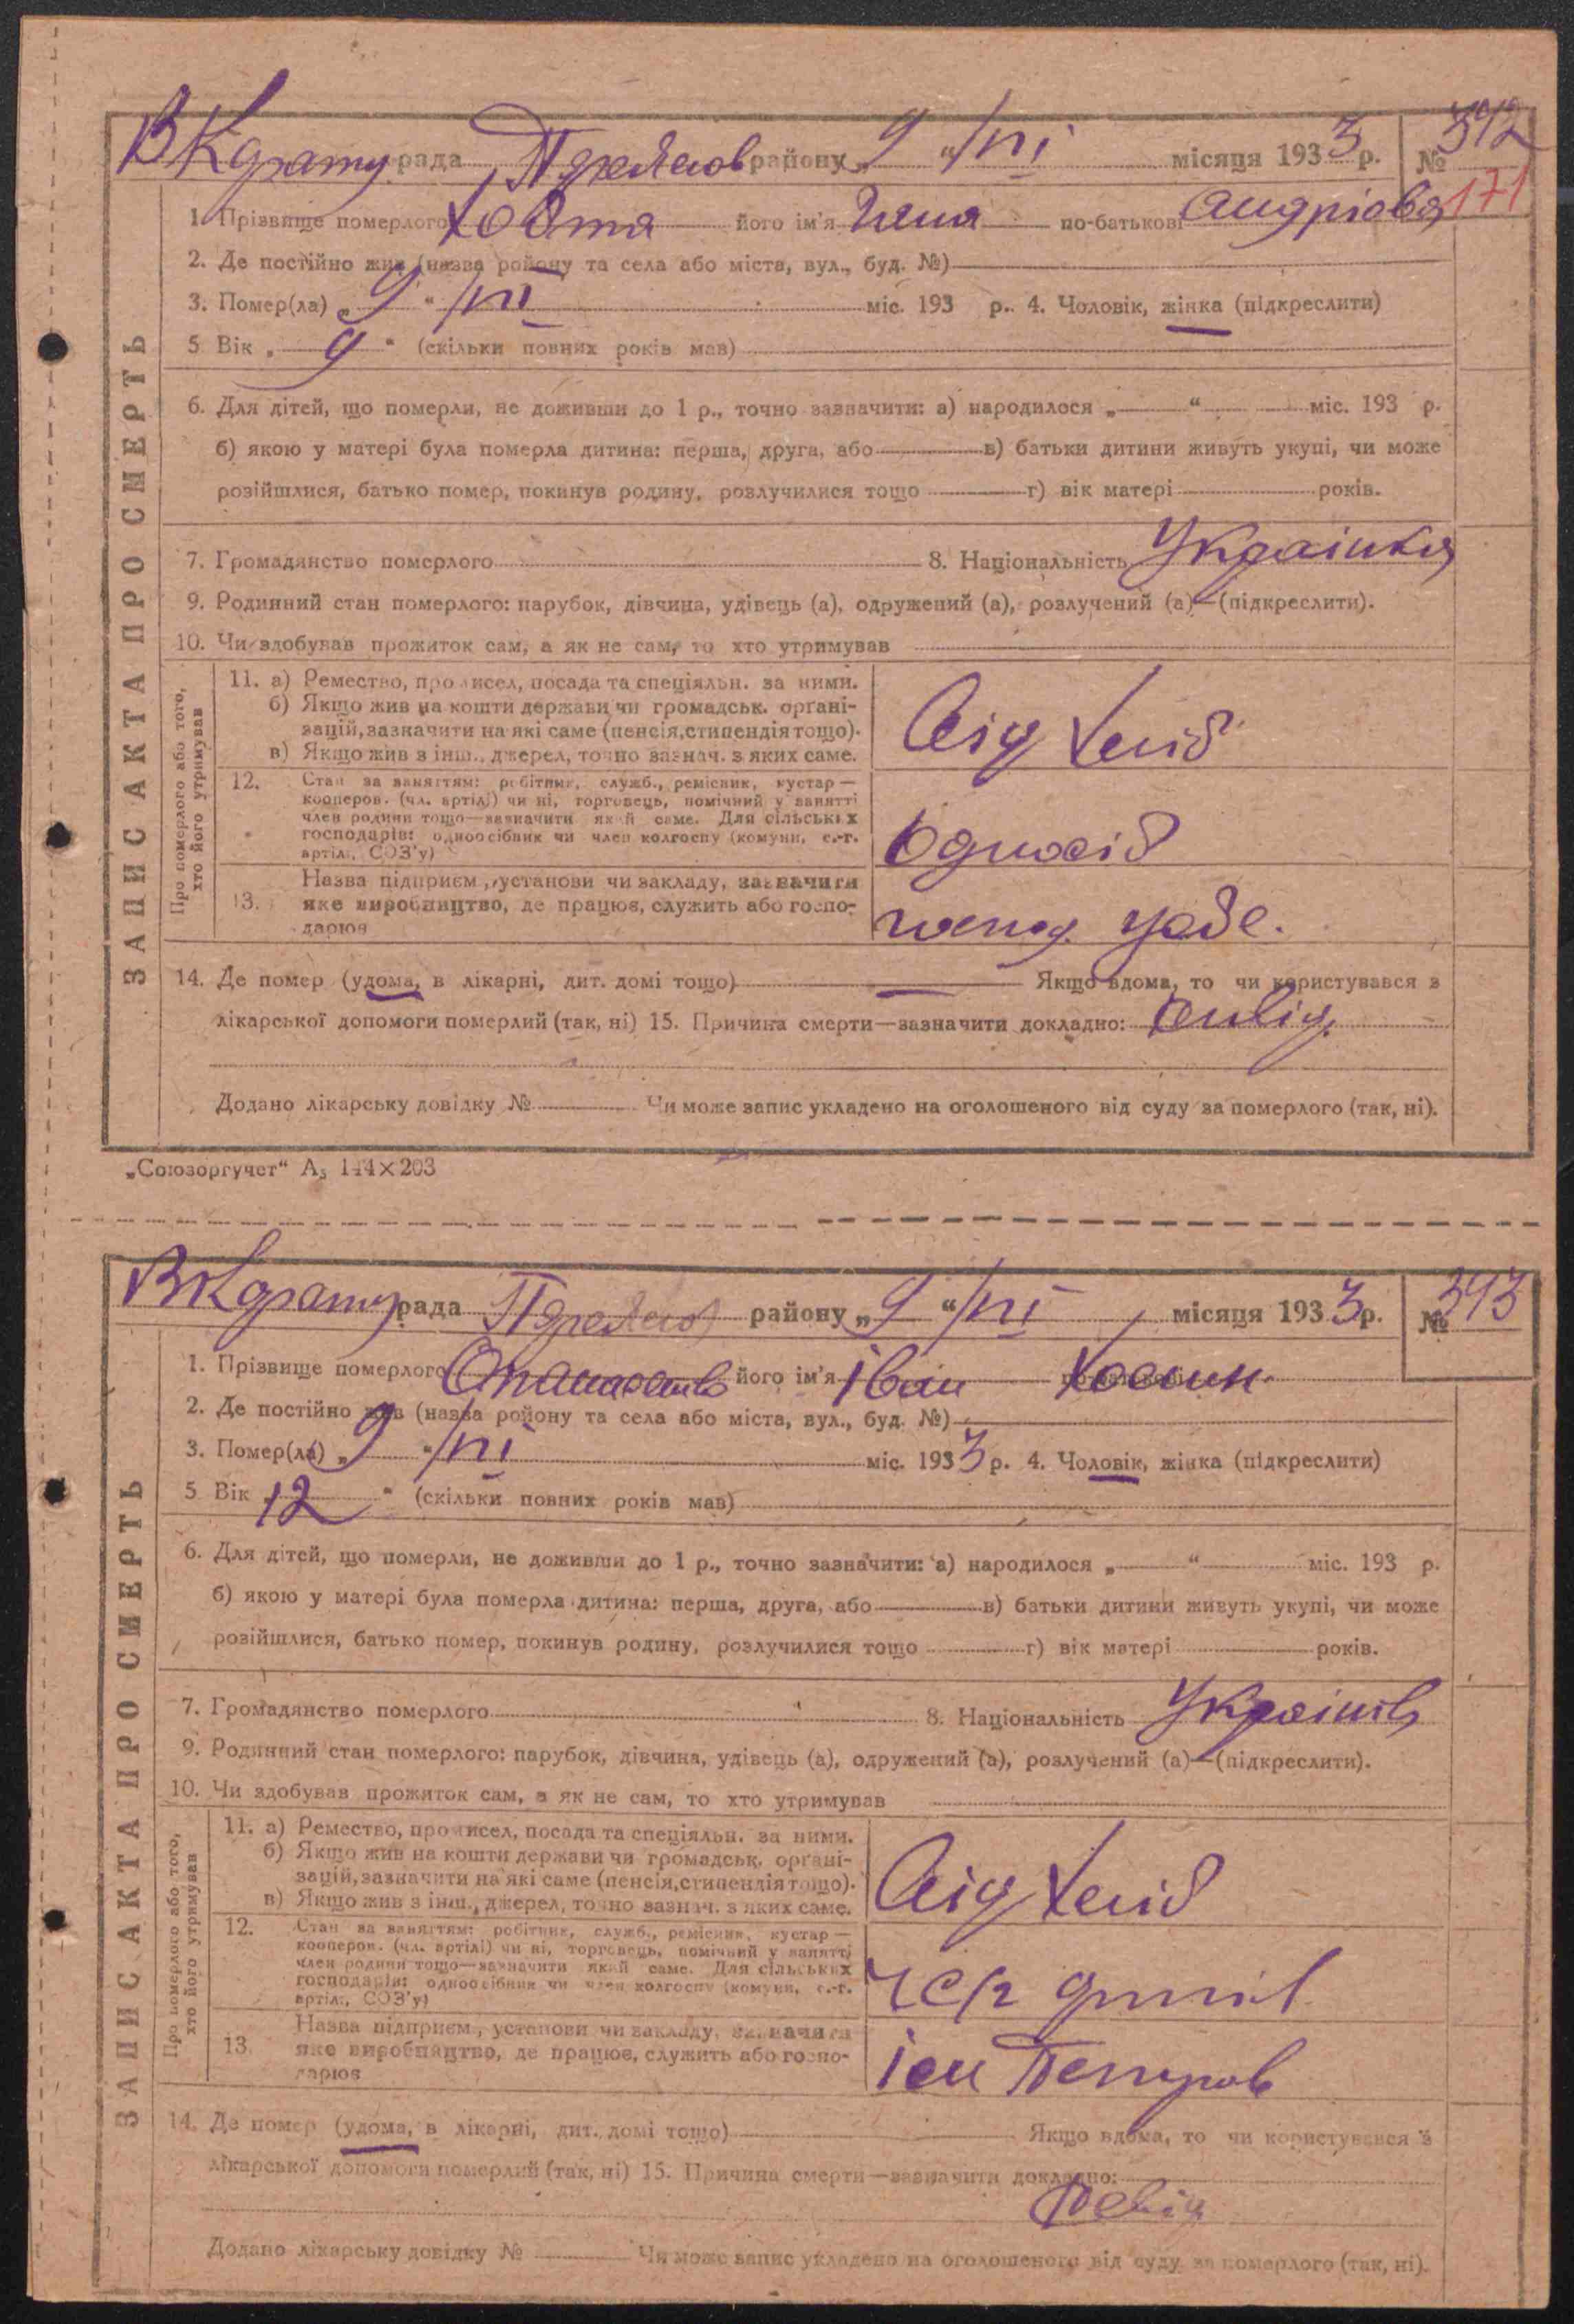 ВКрату рада Переяслов району „9 “ /VI місяця 1933 р. № 342
171
1. Прізвище померлого Ховтя його ім'я Ганя по-батькові Андріова
2. Де постійно жив (назва ройону та села або міста, вул., буд. №)
3. Помер(ла) „9 “ /VI міс. 193 р. 4. Чоловік, жінка (підкреслити)
5 Вік „ 9 “ (скільки повних років мав)
6. Для дітей, що померли, не доживши до 1 р., точно зазначити: а) народилося „ “ міс. 193 р.
б) якою у матері була померла дитина: перша, друга, або в) батьки дитини живуть укупі, чи може
розійшлися, батько помер, покинув родину, розлучилися тощо г) вік матері років.
7. Громадянство померлого 8. Національність Українка
9. Родинний стан померлого: парубок, дівчина, удівець (а), одружений (а), розлучений (а)—(підкреслити).
10. Чи здобував прожиток сам, а як не сам, то хто утримував
ЗАПИС АКТА ПРО СМЕРТЬ
Про померлого або того, хто його утримував
11. а) Ремество, промисел, посада та спеціяльн. за ними.
б) Якщо жив на кошти держави чи громадськ. орґані-
зацій, зазначити на які саме (пенсія, стипендія тощо).
в) Якщо жив з інш., джерел, точно зазнач. з яких саме.
Сід Хліб
12. Стан за заняттям: робітник, служб., ремісник, кустар—
кооперов. (чл. артілі) чи ні, торговець, помічний у занятті
член родини тощо—зазначити який саме. Для сільських
господарів: одноосібник чи член колгоспу (комуни, с.-г.
артілі, СОЗ'у)
Одноосіб
13. Назва підприєм., установи чи закладу, зазначити
яке виробництво, де працює, служить або госпо-
дарює
14. Де помер (удома, в лікарні, дит. домі тощо) Якщо вдома, то чи користувався з
лікарської допомоги померлий (так, ні) 15. Причина смерти—зазначити докладно:
Додано лікарську довідку № Чи може запис укладено на оголошеного від суду за померлого (так, ні).
„Союзоргучет“ А₅ 144×203
ВКрату рада Переяслов району „9 “ /VI місяця 1933 р. № 343
1. Прізвище померлого його ім'я Іван по-батькові
2. Де постійно жив (назва ройону та села або міста, вул., буд. №)
3. Помер(ла) „9 “ /VI міс. 1933 р. 4. Чоловік, жінка (підкреслити)
5 Вік 12 “ (скільки повних років мав)
6. Для дітей, що померли, не доживши до 1 р., точно зазначити: а) народилося „ “ міс. 193 р.
б) якою у матері була померла дитина: перша, друга, або в) батьки дитини живуть укупі, чи може
розійшлися, батько помер, покинув родину, розлучилися тощо г) вік матері років.
7. Громадянство померлого 8. Національність
9. Родинний стан померлого: парубок, дівчина, удівець (а), одружений (а), розлучений (а)—(підкреслити).
10. Чи здобував прожиток сам, а як не сам, то хто утримував
ЗАПИС АКТА ПРО СМЕРТЬ
Про померлого або того, хто його утримував
11. а) Ремество, промисел, посада та спеціяльн. за ними.
б) Якщо жив на кошти держави чи громадськ. орґані-
зацій, зазначити на які саме (пенсія, стипендія тощо).
в) Якщо жив з інш., джерел, точно зазнач. з яких саме.
Сід Хліб
12. Стан за заняттям: робітник, служб., ремісник, кустар—
кооперов. (чл. артілі) чи ні, торговець, помічний у занятті
член родини тощо—зазначити який саме. Для сільських
господарів: одноосібник чи член колгоспу (комуни, с.-г.
артілі, СОЗ'у)
13. Назва підприєм., установи чи закладу, зазначити
яке виробництво, де працює, служить або госпо-
дарює
ім Петров
14. Де помер (удома, в лікарні, дит. домі тощо) Якщо вдома, то чи користувався з
лікарської допомоги померлий (так, ні) 15. Причина смерти—зазначити докладно:
Додано лікарську довідку № Чи може запис укладено на оголошеного від суду за померлого (так, ні).